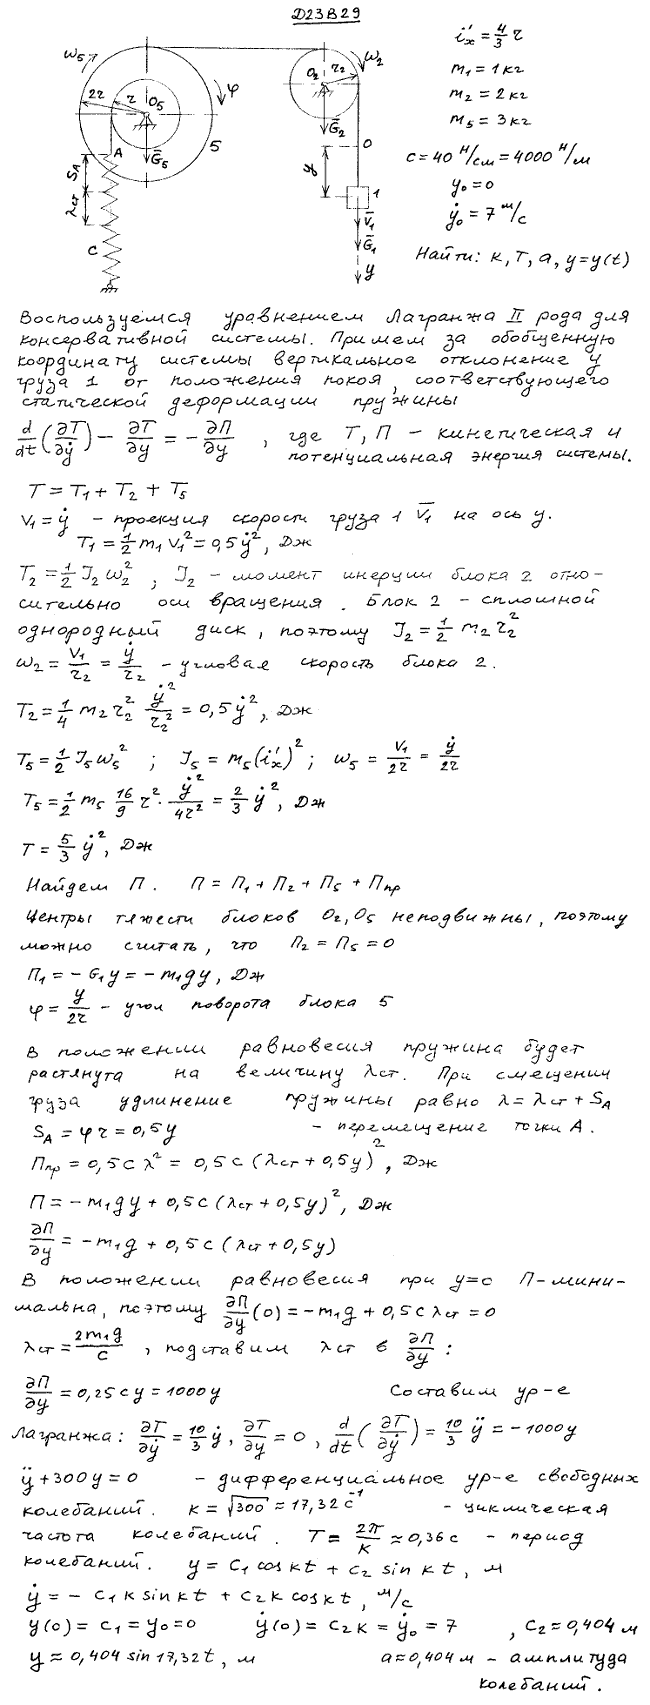 Д23В29
i'ₓ = 4/3 r
m₁ = 1 кг
m₂ = 2 кг
m₅ = 3 кг
c = 40 Н/см = 4000 Н/м
y₀ = 0
ẏ₀ = 7 м/с
Найти: k, T, a, y = y(t)
ω₅
2r
r
O₅
φ
5
A
G̅₅
S_A
λст
c
O₂
r₂
ω₂
G̅₂
0
y
1
V̅₁
G̅₁
y
Воспользуемся уравнением Лагранжа II рода для
консервативной системы. Примем за обобщенную
координату системы вертикальное отклонение y
груза 1 от положения покоя, соответствующего
статической деформации пружины
d/dt(∂T/∂ẏ) − ∂T/∂y = −∂П/∂y , где T, П – кинетическая и
потенциальная энергия системы.
T = T₁ + T₂ + T₅
V₁ = ẏ – проекция скорости груза 1 V̅₁ на ось y.
T₁ = 1/2 m₁V₁² = 0,5ẏ², Дж
T₂ = 1/2 J₂ω₂² ; J₂ – момент инерции блока 2 отно-
сительно оси вращения. Блок 2 – сплошной
однородный диск, поэтому J₂ = 1/2 m₂r₂²
ω₂ = V₁/r₂ = ẏ/r₂ – угловая скорость блока 2.
T₂ = 1/4 m₂r₂² ẏ²/r₂² = 0,5ẏ², Дж
T₅ = 1/2 J₅ω₅² ; J₅ = m₅(i'ₓ)² ; ω₅ = V₁/2r = ẏ/2r
T₅ = 1/2 m₅ 16/9 r² · ẏ²/4r² = 2/3 ẏ², Дж
T = 5/3 ẏ², Дж
Найдем П. П = П₁ + П₂ + П₅ + Ппр
Центры тяжести блоков O₂, O₅ неподвижны, поэтому
можно считать, что П₂ = П₅ = 0
П₁ = −G₁y = −m₁gy, Дж
φ = y/2r – угол поворота блока 5
В положении равновесия пружина будет
растянута на величину λст. При смещении
груза удлинение пружины равно λ = λст + S_A
S_A = φr = 0,5y – перемещение точки A.
Ппр = 0,5cλ² = 0,5c(λст + 0,5y)², Дж
П = −m₁gy + 0,5c(λст + 0,5y)², Дж
∂П/∂y = −m₁g + 0,5c(λст + 0,5y)
В положении равновесия при y=0 П – мини-
мальна, поэтому ∂П/∂y(0) = −m₁g + 0,5cλст = 0
λст = 2m₁g/c , подставим λст в ∂П/∂y :
∂П/∂y = 0,25cy = 1000y Составим ур-е
Лагранжа: ∂T/∂ẏ = 10/3 ẏ, ∂T/∂y = 0, d/dt(∂T/∂ẏ) = 10/3 ÿ = −1000y
ÿ + 300y = 0 – дифференциальное ур-е свободных
колебаний. k = √300 ≈ 17,32 с⁻¹ – циклическая
частота колебаний. T = 2π/k ≈ 0,36 с – период
колебаний. y = C₁ cos kt + C₂ sin kt, м
ẏ = −C₁k sin kt + C₂k cos kt, м/с
y(0) = C₁ = y₀ = 0 ẏ(0) = C₂k = ẏ₀ = 7 , C₂ ≈ 0,404 м
y ≈ 0,404 sin 17,32t, м a ≈ 0,404 м – амплитуда
колебаний.